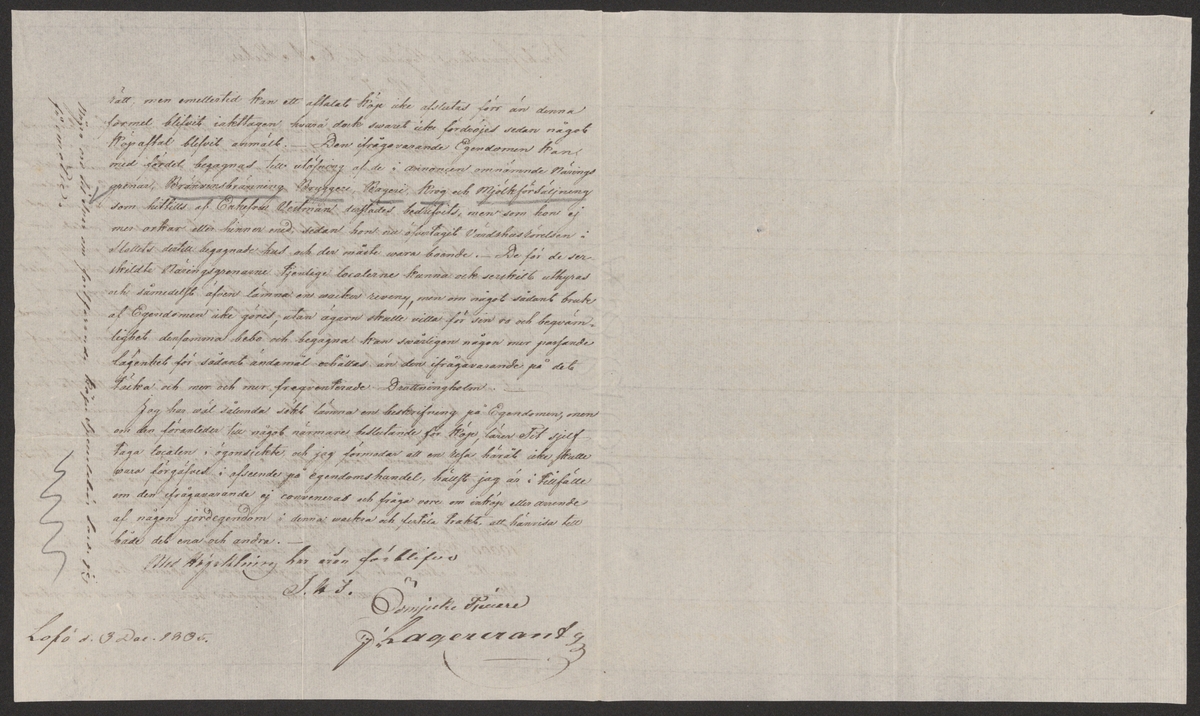 rätt, men emellertid kan ett aftaladt köp icke afslutas förr än denna
formel blifvit iakttagen hvarå dock swaret icke fördröjes sedan något
Köpaftal blifvit anmält. — Den ifrågavarande Egendomen kan
med fördel begagnas till utöfning af de i annoncen omnämnde Närings
grenar, Bränvinsbränning Bryggeri, Bageri, Krog och Mjölkförsäljning
som hittills af Enkefru Vestman sistlades bedrifvits, men som hon ej
mer orkar eller hinner med, sedan hon nu emottagit Värdshusrörelsen i
Slottets dertill begagnade hus och der måste wara boende. — De för de ser-
skildte Näringsgrenarne tjenlige localerne kunna ock serskildt uthyras
och såmedelst äfven lämna en wacker reveny, men om något sådant bruk
af Egendomen icke göres, utan ägarn skulle villa för sin ro och beqväm-
lighet densamma bebo och begagna kan swårligen någon mer passande
lägenhet för sådant ändamål erhållas än den ifrågavarande på det
täcka och mer och mer freqventerade Drottningholm. —
Jag har wäl sålunda sökt lämna en beskrifning på Egendomen, men
om den föranleder till något närmare beslutande för Köp, lärer Tit sjelf
taga localen i ögonsickte, och jeg förmodar att en resa häråt icke skulle
wara förgäfves i afseende på egendomshandel, hälst jag är i tillfälle
om den ifrågavarande ej conveneras och fråga vore om inköp eller arrende
af någon jordegendom i denna wackra och fertila trakt, att hänvisa till
både det ena och andra. —
Med Högaktning har äran förblifva
Ödmjuke Tjenare
Lagercrantz
Lofö d. 3 Dec. 1835.